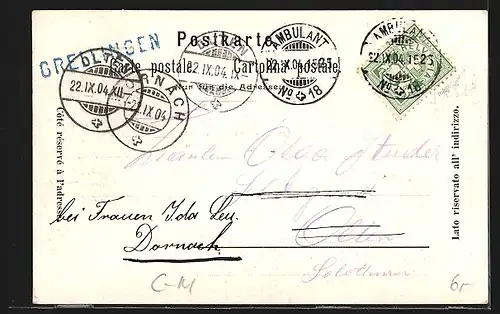 GRELLINGEN
Postkarte.
postale. Cartolina postale.
Nur für die Adresse
OLTEN
22.IX.04.XII
DORNACH
22.IX.04
22.IX.04.IX
AMBULANT
22.IX.04.1525
No 18
AMBULANT
22.IX.04.1525
No 18
HELVETIA
Côté réservé à l'adresse.
Lato riservato all' indirizzo.
Fräulein Olga Studer
Olten
Solothurn
bei Frauen Ida Leu.
Dornach
C-M
6.-